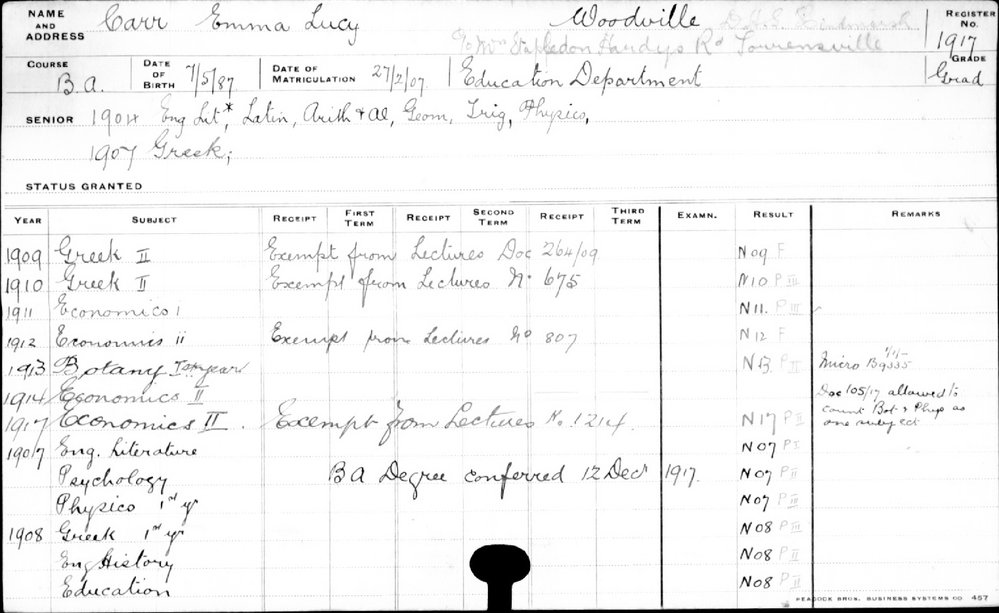 NAME AND ADDRESS Carr Emma Lucy Woodville D.H.S. Hindmarsh REGISTER No.
C/o Mrs Stapledon Hardys Rd Torrensville 1917
COURSE B.A. DATE OF BIRTH 7/5/87 DATE OF MATRICULATION 27/2/07 Education Department GRADE Grad
SENIOR 1904 Eng Lit*, Latin, Arith + Al, Geom, Trig, Physics,
1907 Greek;
STATUS GRANTED
YEAR SUBJECT RECEIPT FIRST TERM RECEIPT SECOND TERM RECEIPT THIRD TERM EXAMN. RESULT REMARKS
1909 Greek II Exempt from Lectures Doc 264/09 N 09 F
1910 Greek II Exempt from Lectures No 675 N 10 P III
1911 Economics I N 11. P III
1912 Economics ii Exempt from Lectures No 807 N 12 F
1913 Botany 1st year N 13. P II Micro 1/1/- B9335
1914 Economics II Doc 105/17 allowed to
count Bot & Phys as
1917 Economics II. Exempt from Lectures No. 1214. N 17 P II one subject
1907 Eng. Literature N 07 P I
Psychology BA Degree conferred 12 Decr 1917. N 07 P II
Physics 1st yr N 07 P III
1908 Greek 1st yr N 08 P III
Eng History N 08 P II
Education N 08 P II
PEACOCK BROS. BUSINESS SYSTEMS CO 457